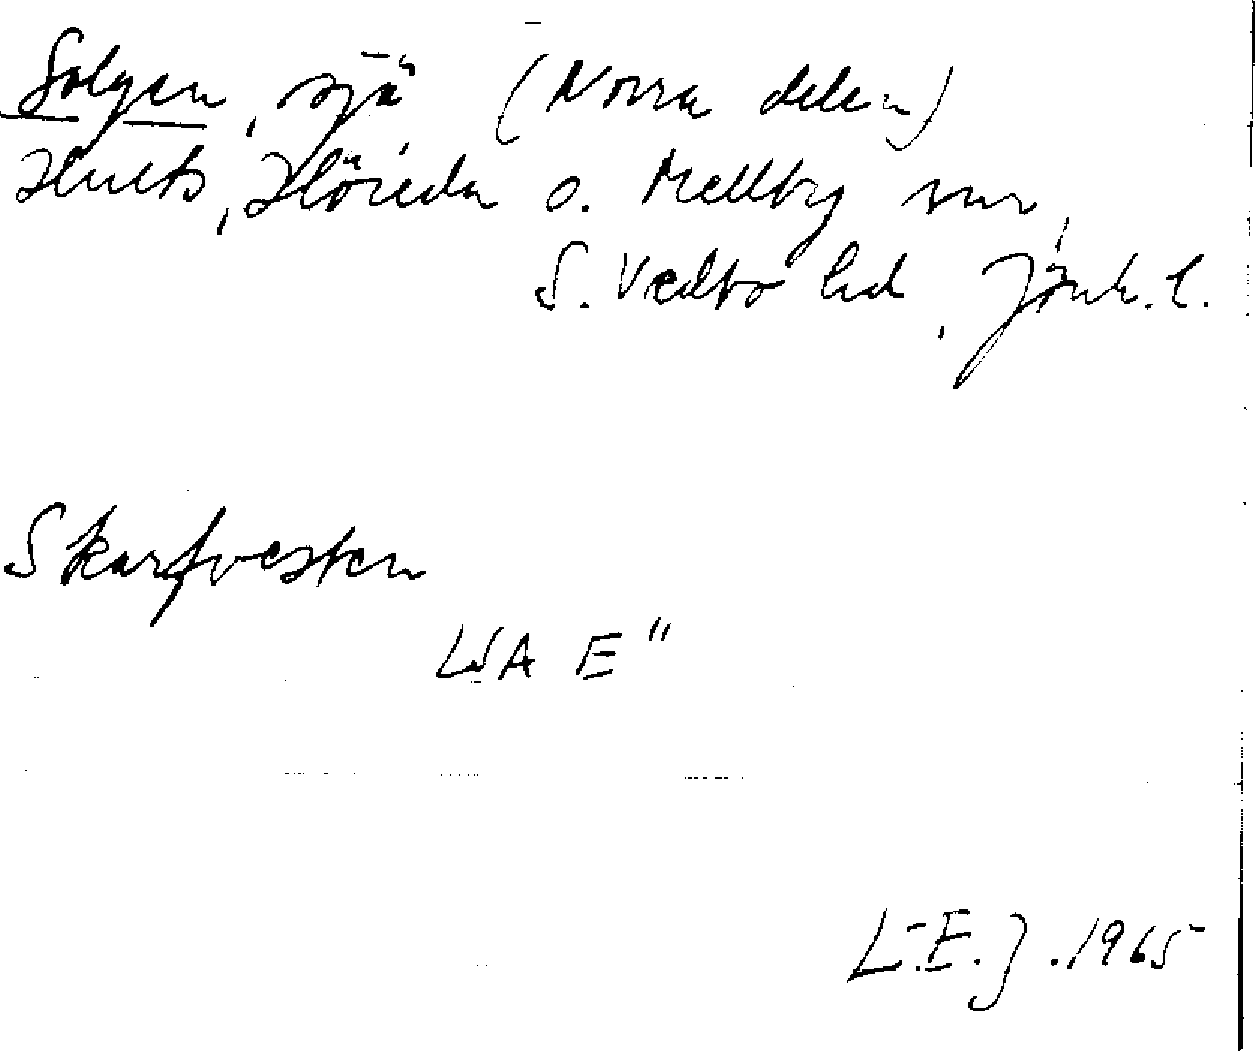 Solgen, sjö (Norra delen)
Hults, Höreda o. Mellby snr,
S. Vedbo hd, Jönk. l.
Skarfvesten
LSA E"
L-E. J. 1965